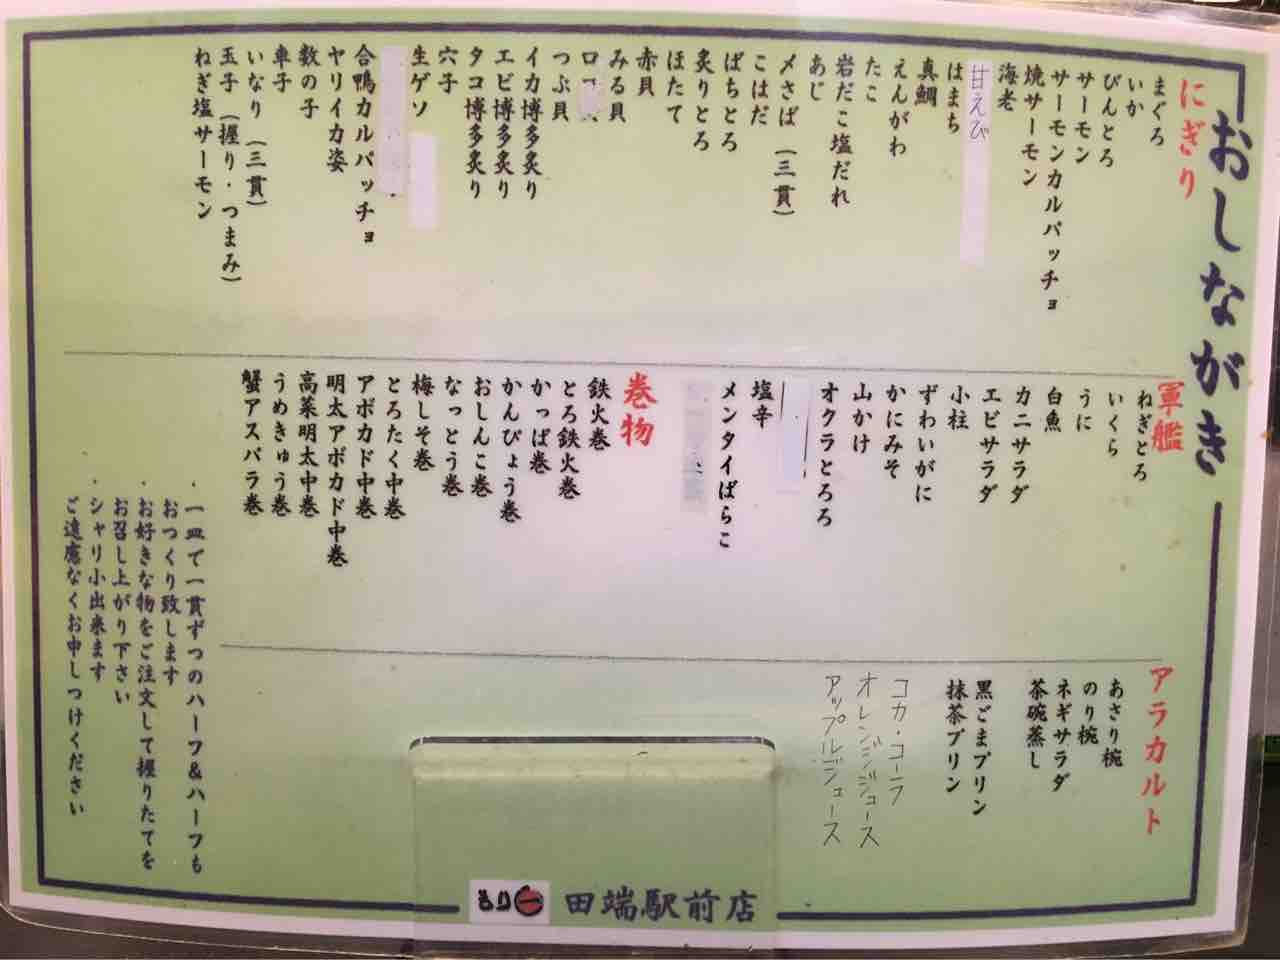 おしながき
にぎり
まぐろ
いか
びんとろ
サーモン
サーモンカルパッチョ
焼サーモン
海老
甘えび
はまち
真鯛
えんがわ
たこ
岩だこ塩だれ
あじ
〆さば（三貫）
こはだ
ばちとろ
炙りとろ
ほたて
赤貝
みる貝
つぶ貝
イカ博多炙り
エビ博多炙り
タコ博多炙り
穴子
生ゲソ
合鴨カルパッチョ
ヤリイカ姿
数の子
車子
いなり（三貫）
玉子（握り・つまみ）
ねぎ塩サーモン
軍艦
ねぎとろ
いくら
うに
白魚
カニサラダ
エビサラダ
小柱
ずわいがに
かにみそ
山かけ
オクラとろろ
塩辛
メンタイばらこ
巻物
鉄火巻
とろ鉄火巻
かっぱ巻
かんぴょう巻
おしんこ巻
なっとう巻
梅しそ巻
とろたく中巻
アボカド中巻
明太アボカド中巻
高菜明太中巻
うめきゅう巻
蟹アスパラ巻
アラカルト
あさり椀
のり椀
ネギサラダ
茶碗蒸し
黒ごまプリン
抹茶プリン
コカ・コーラ
オレンジジュース
アップルジュース
・一皿で一貫ずつのハーフ&ハーフも
おつくり致します
・お好きな物をご注文して握りたてを
お召し上がり下さい
・シャリ小出来ます
ご遠慮なくお申しつけください
もり一 田端駅前店